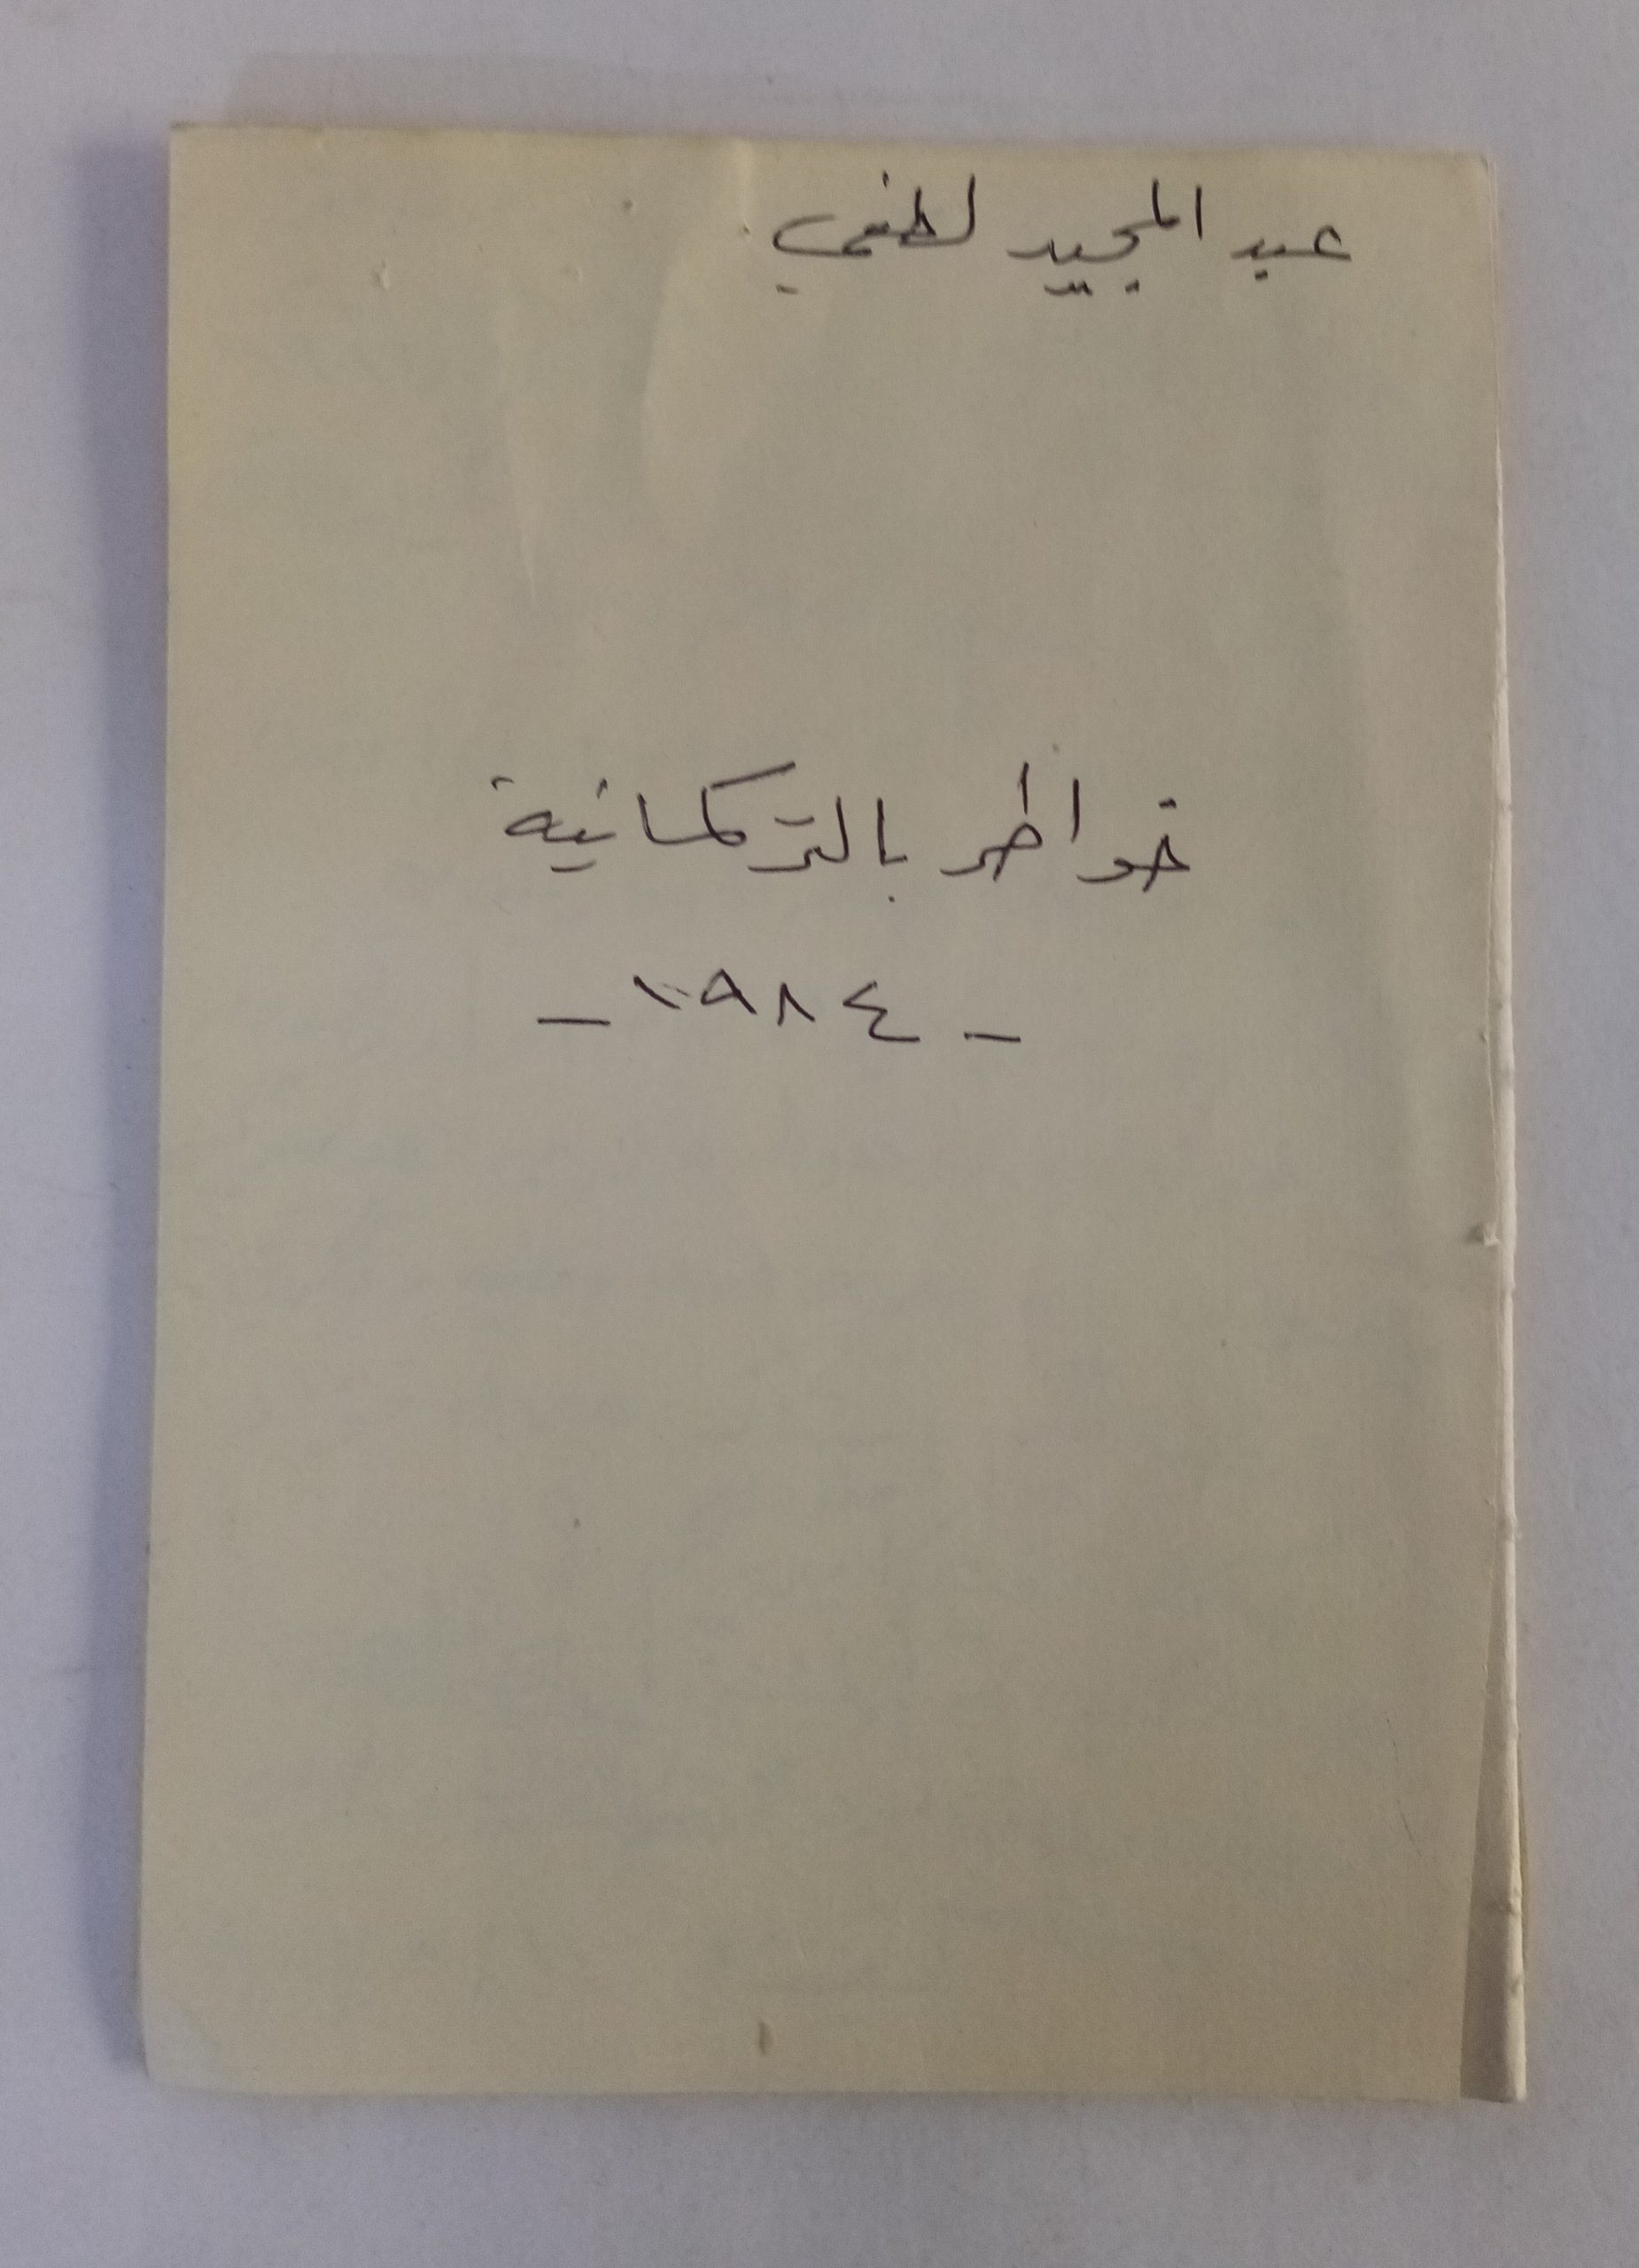 عبد المجيد لطفي
خواطر بالتركمانية
- ١٩٨٤ -